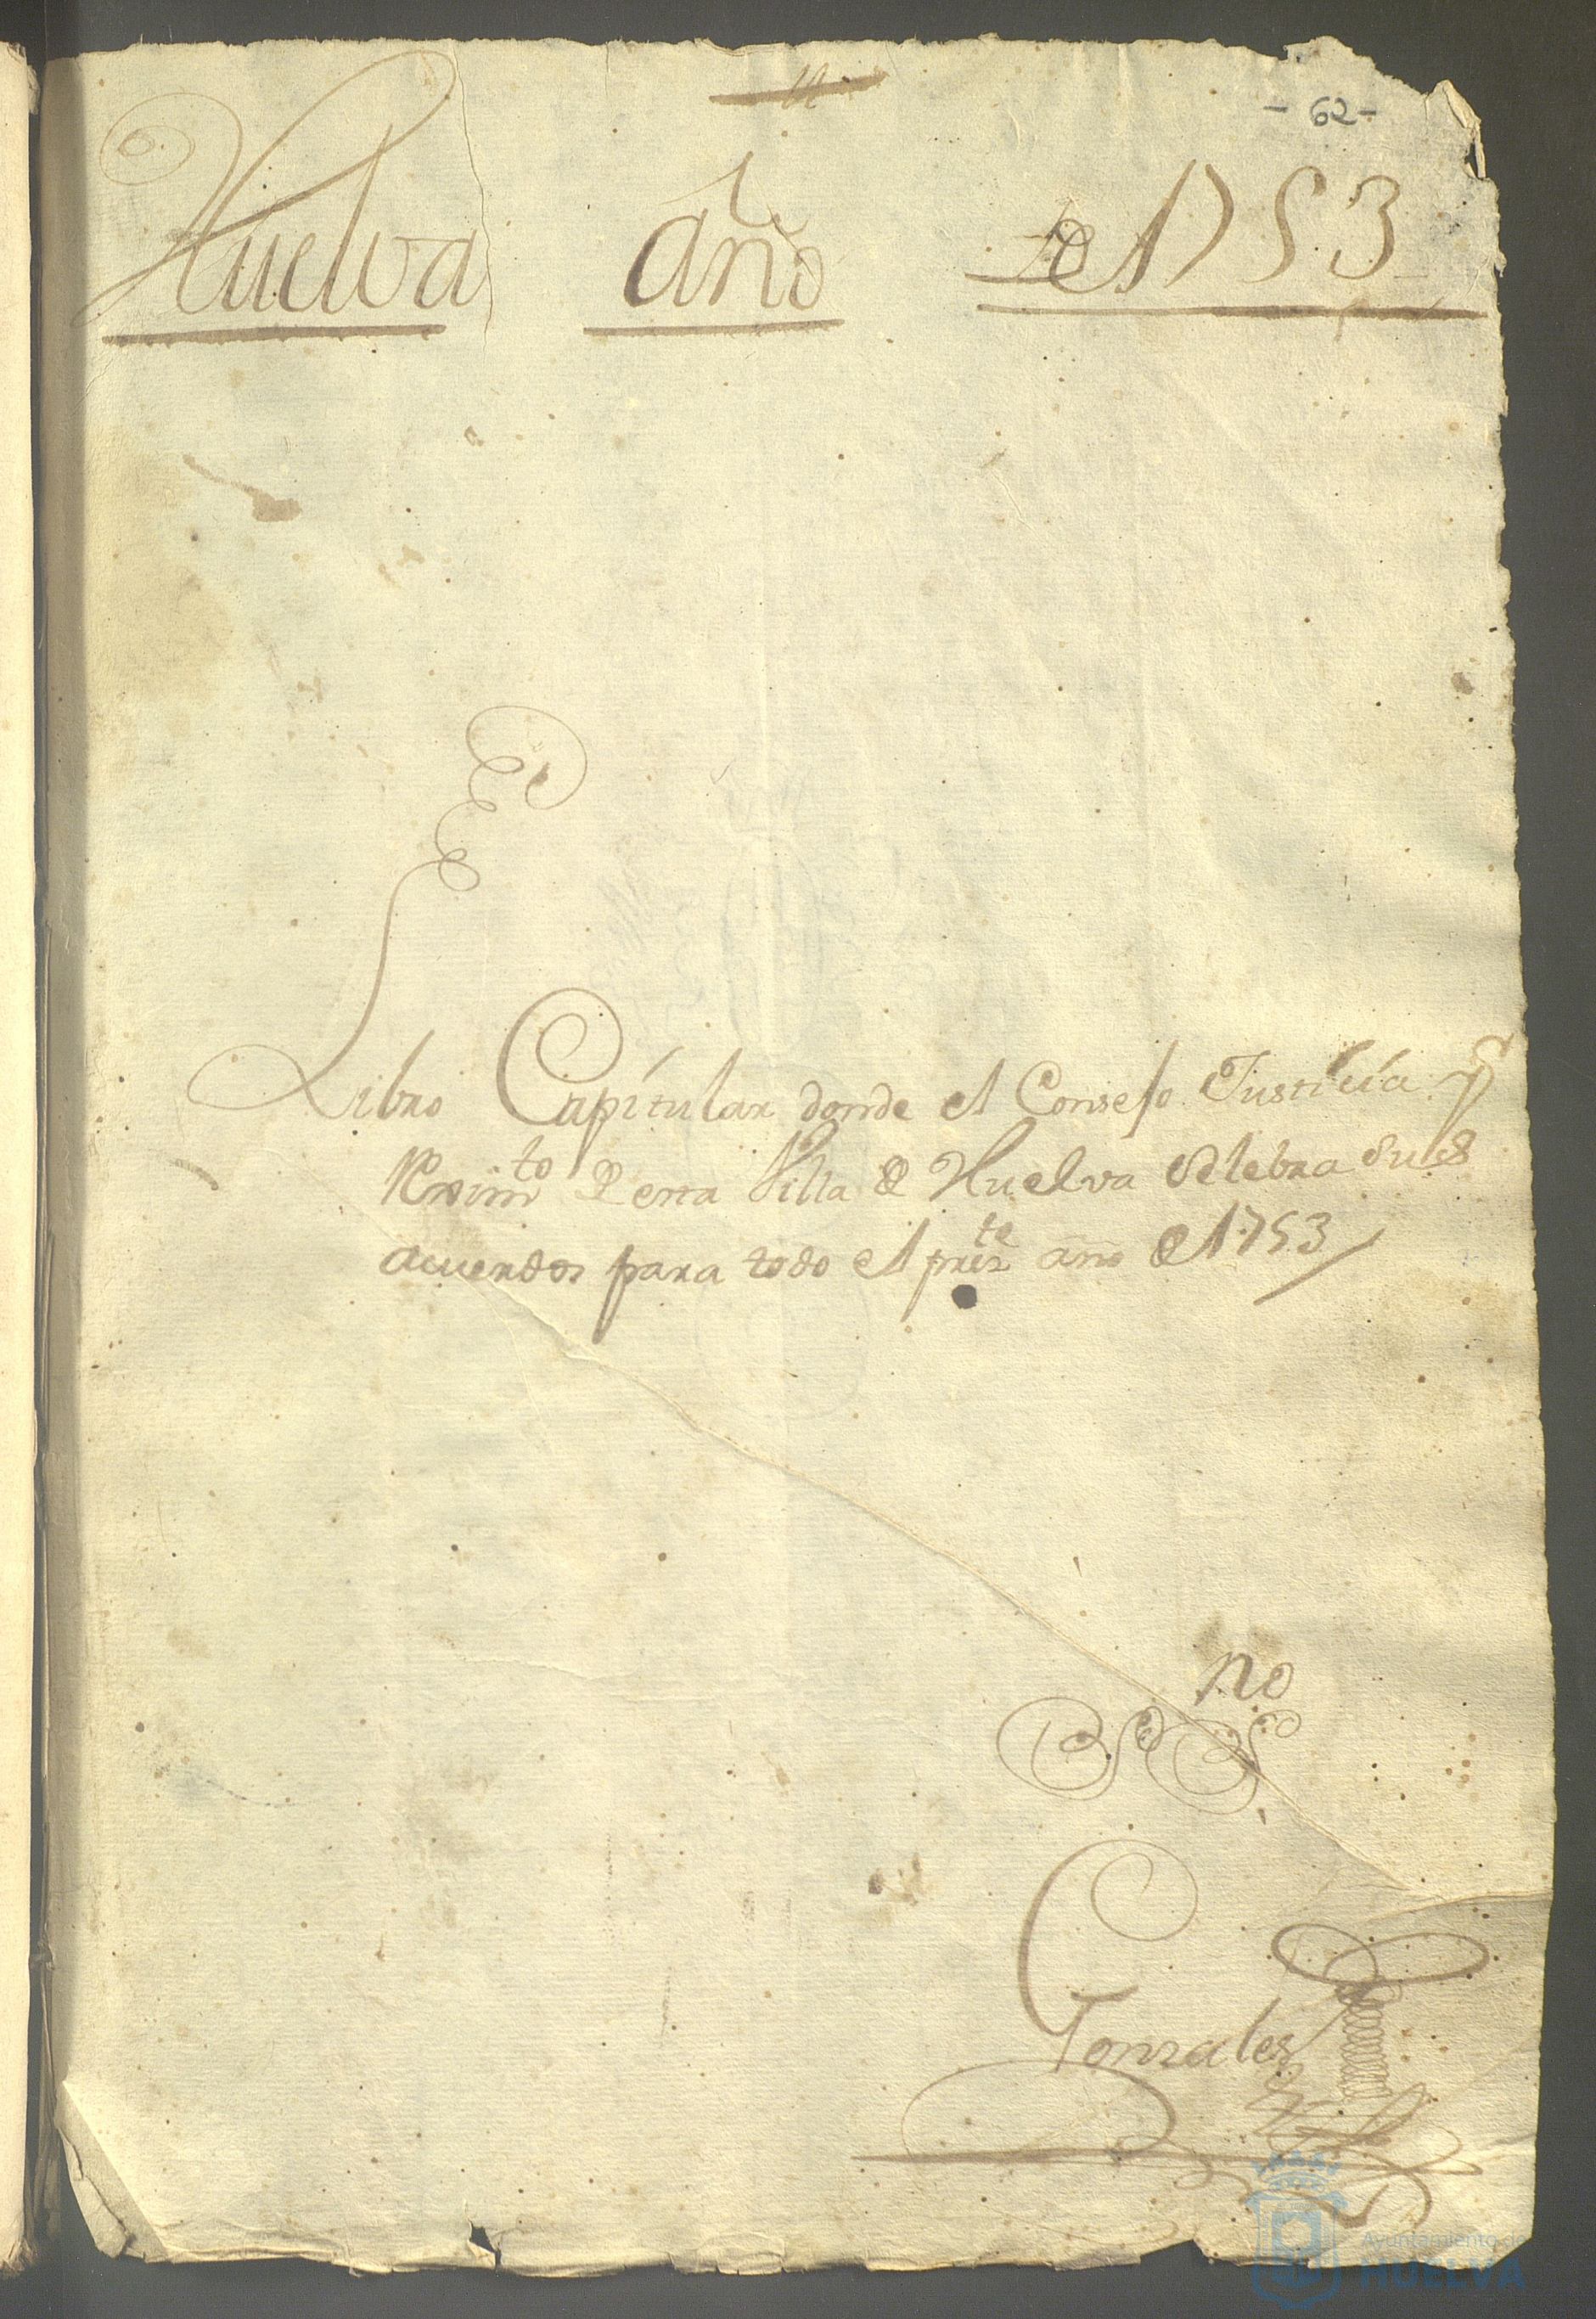 - 62 -
Huelva año de 1753
Libro Capitular donde el Consejo Justicia y
Reximto de esta Villa de Huelva Selebra sus
acuerdos para todo el preste año de 1753
no
Gonzales
Ayuntamiento de
HUELVA